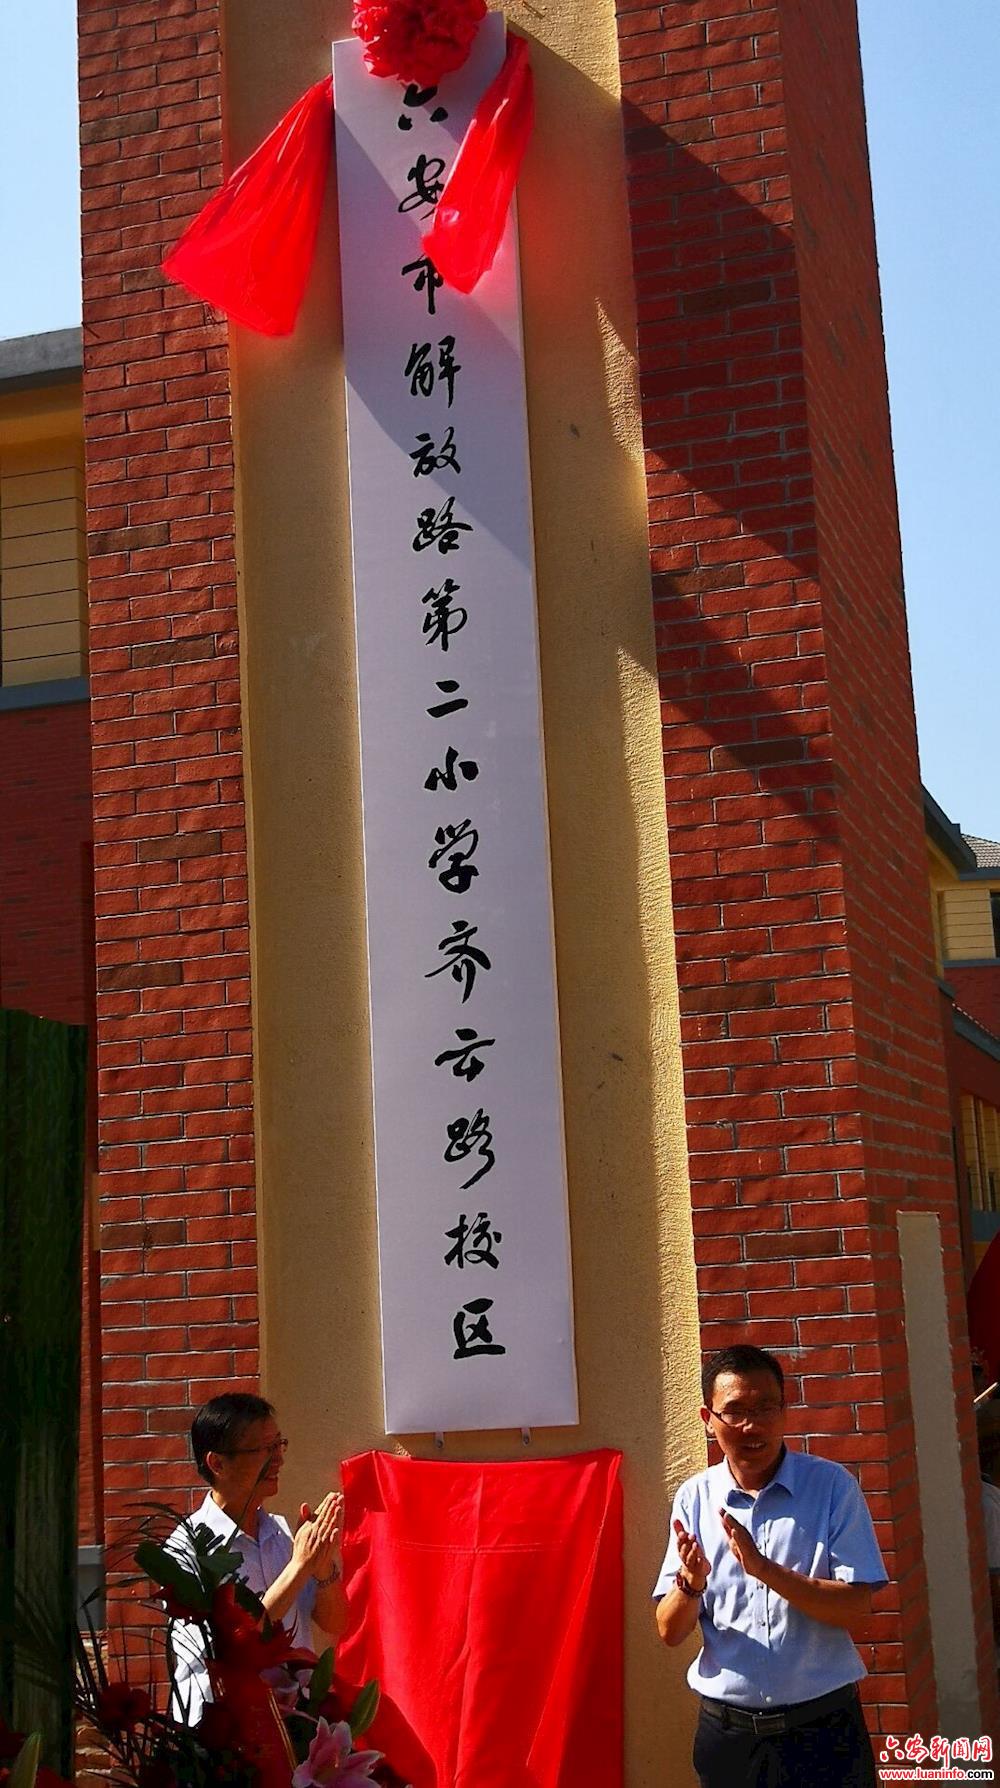 六安市解放路第二小学齐云路校区
六安新闻网
www.luaninfo.com